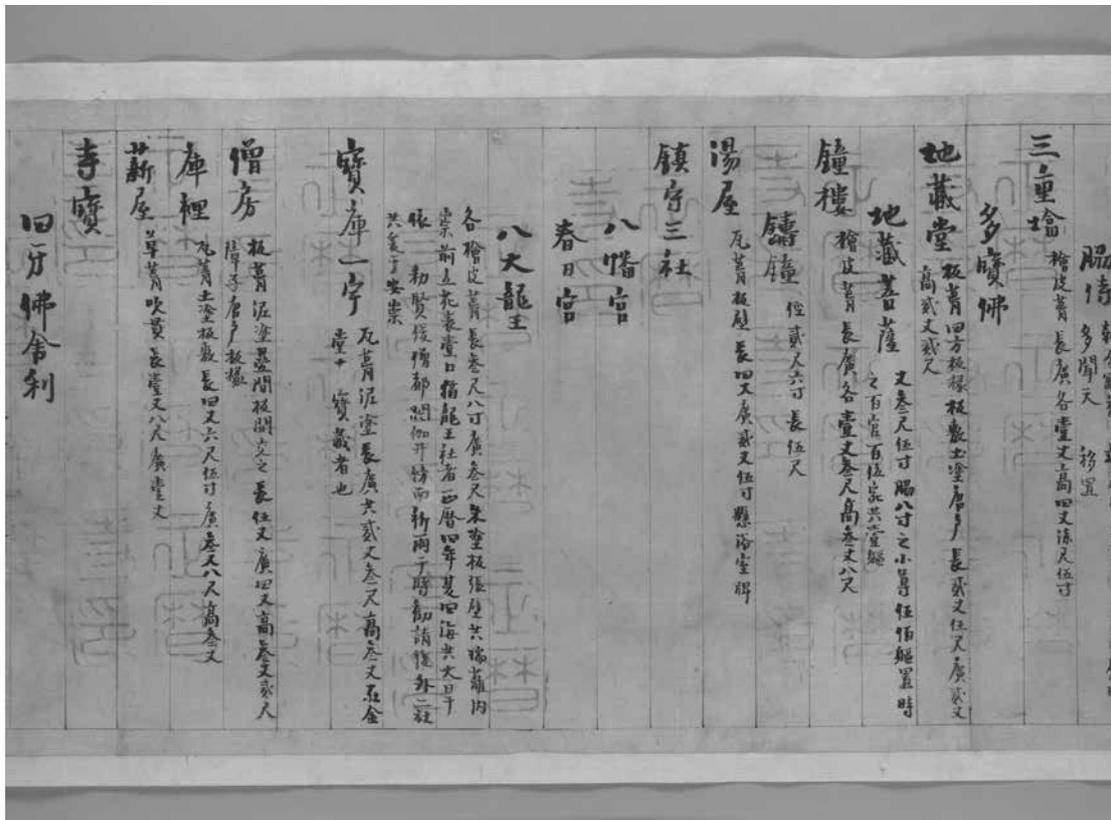 脇侍 多聞天 移置
三重塔 檜皮葺 長廣各壹丈高四丈漆尺伍寸
多寶佛
地藏堂 板葺四方板椽板敷土塗唐戶 長貳丈伍尺廣貳丈
高貳丈貳尺
地藏菩薩 丈叁尺伍寸 腸八寸之小尊伍佰軀置時
之百官百伍家共壹軀
鐘樓 檜皮葺 長廣各壹丈叁尺高叁丈八尺
鑄鐘 徑貳尺六寸 長伍尺
湯屋 瓦葺板壁 長四丈廣貳丈伍寸懸浴室牌
鎮守三社
八幡宮
春日宮
八大龍王
各檜皮葺長叁尺八寸廣叁尺朱塗板張壁共瑞籬内
崇前立花表壹口 龍王社者正曆四年夏四海共大旱干
依 勅賢俊僧都 閼伽井傍而祈雨于時勸請後外二社
共 于安崇
寶庫一宇 瓦葺泥塗長廣共貳丈叁尺高叁丈 在金
堂 寶藏者也
僧房 板葺泥塗 間板間交之長伍丈廣四丈高叁丈貳尺
障子唐戶板
庫裡 瓦葺土塗板敷長四丈六尺伍寸廣叁丈八尺高叁丈
薪屋 草葺吹貫長壹丈八尺廣壹丈
寺寶
四分佛舍利